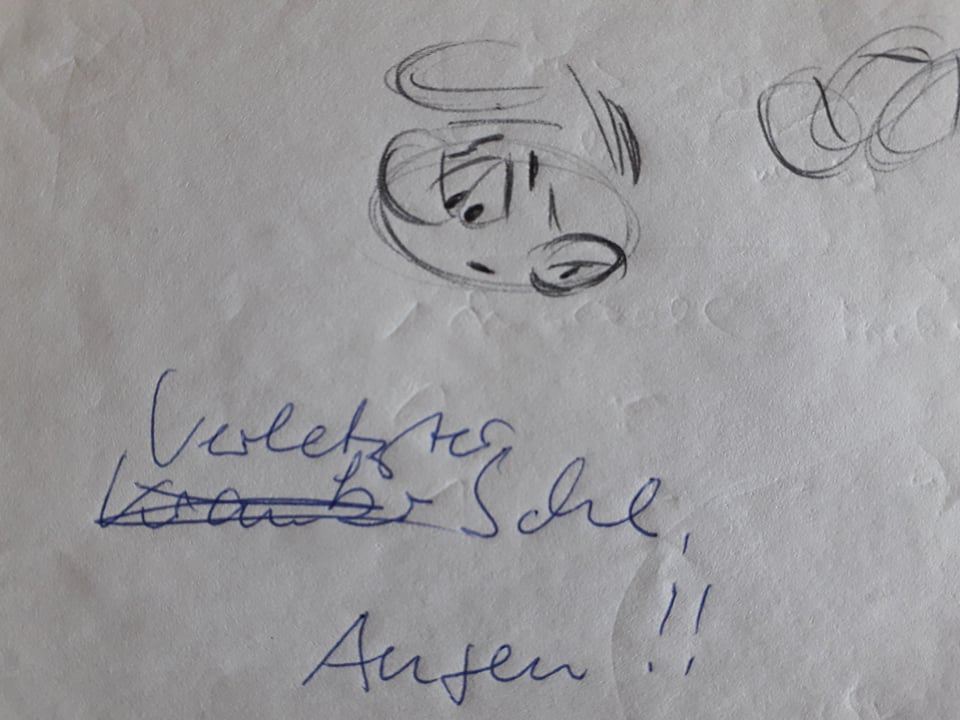 Verletzter
Kranker
Augen !!